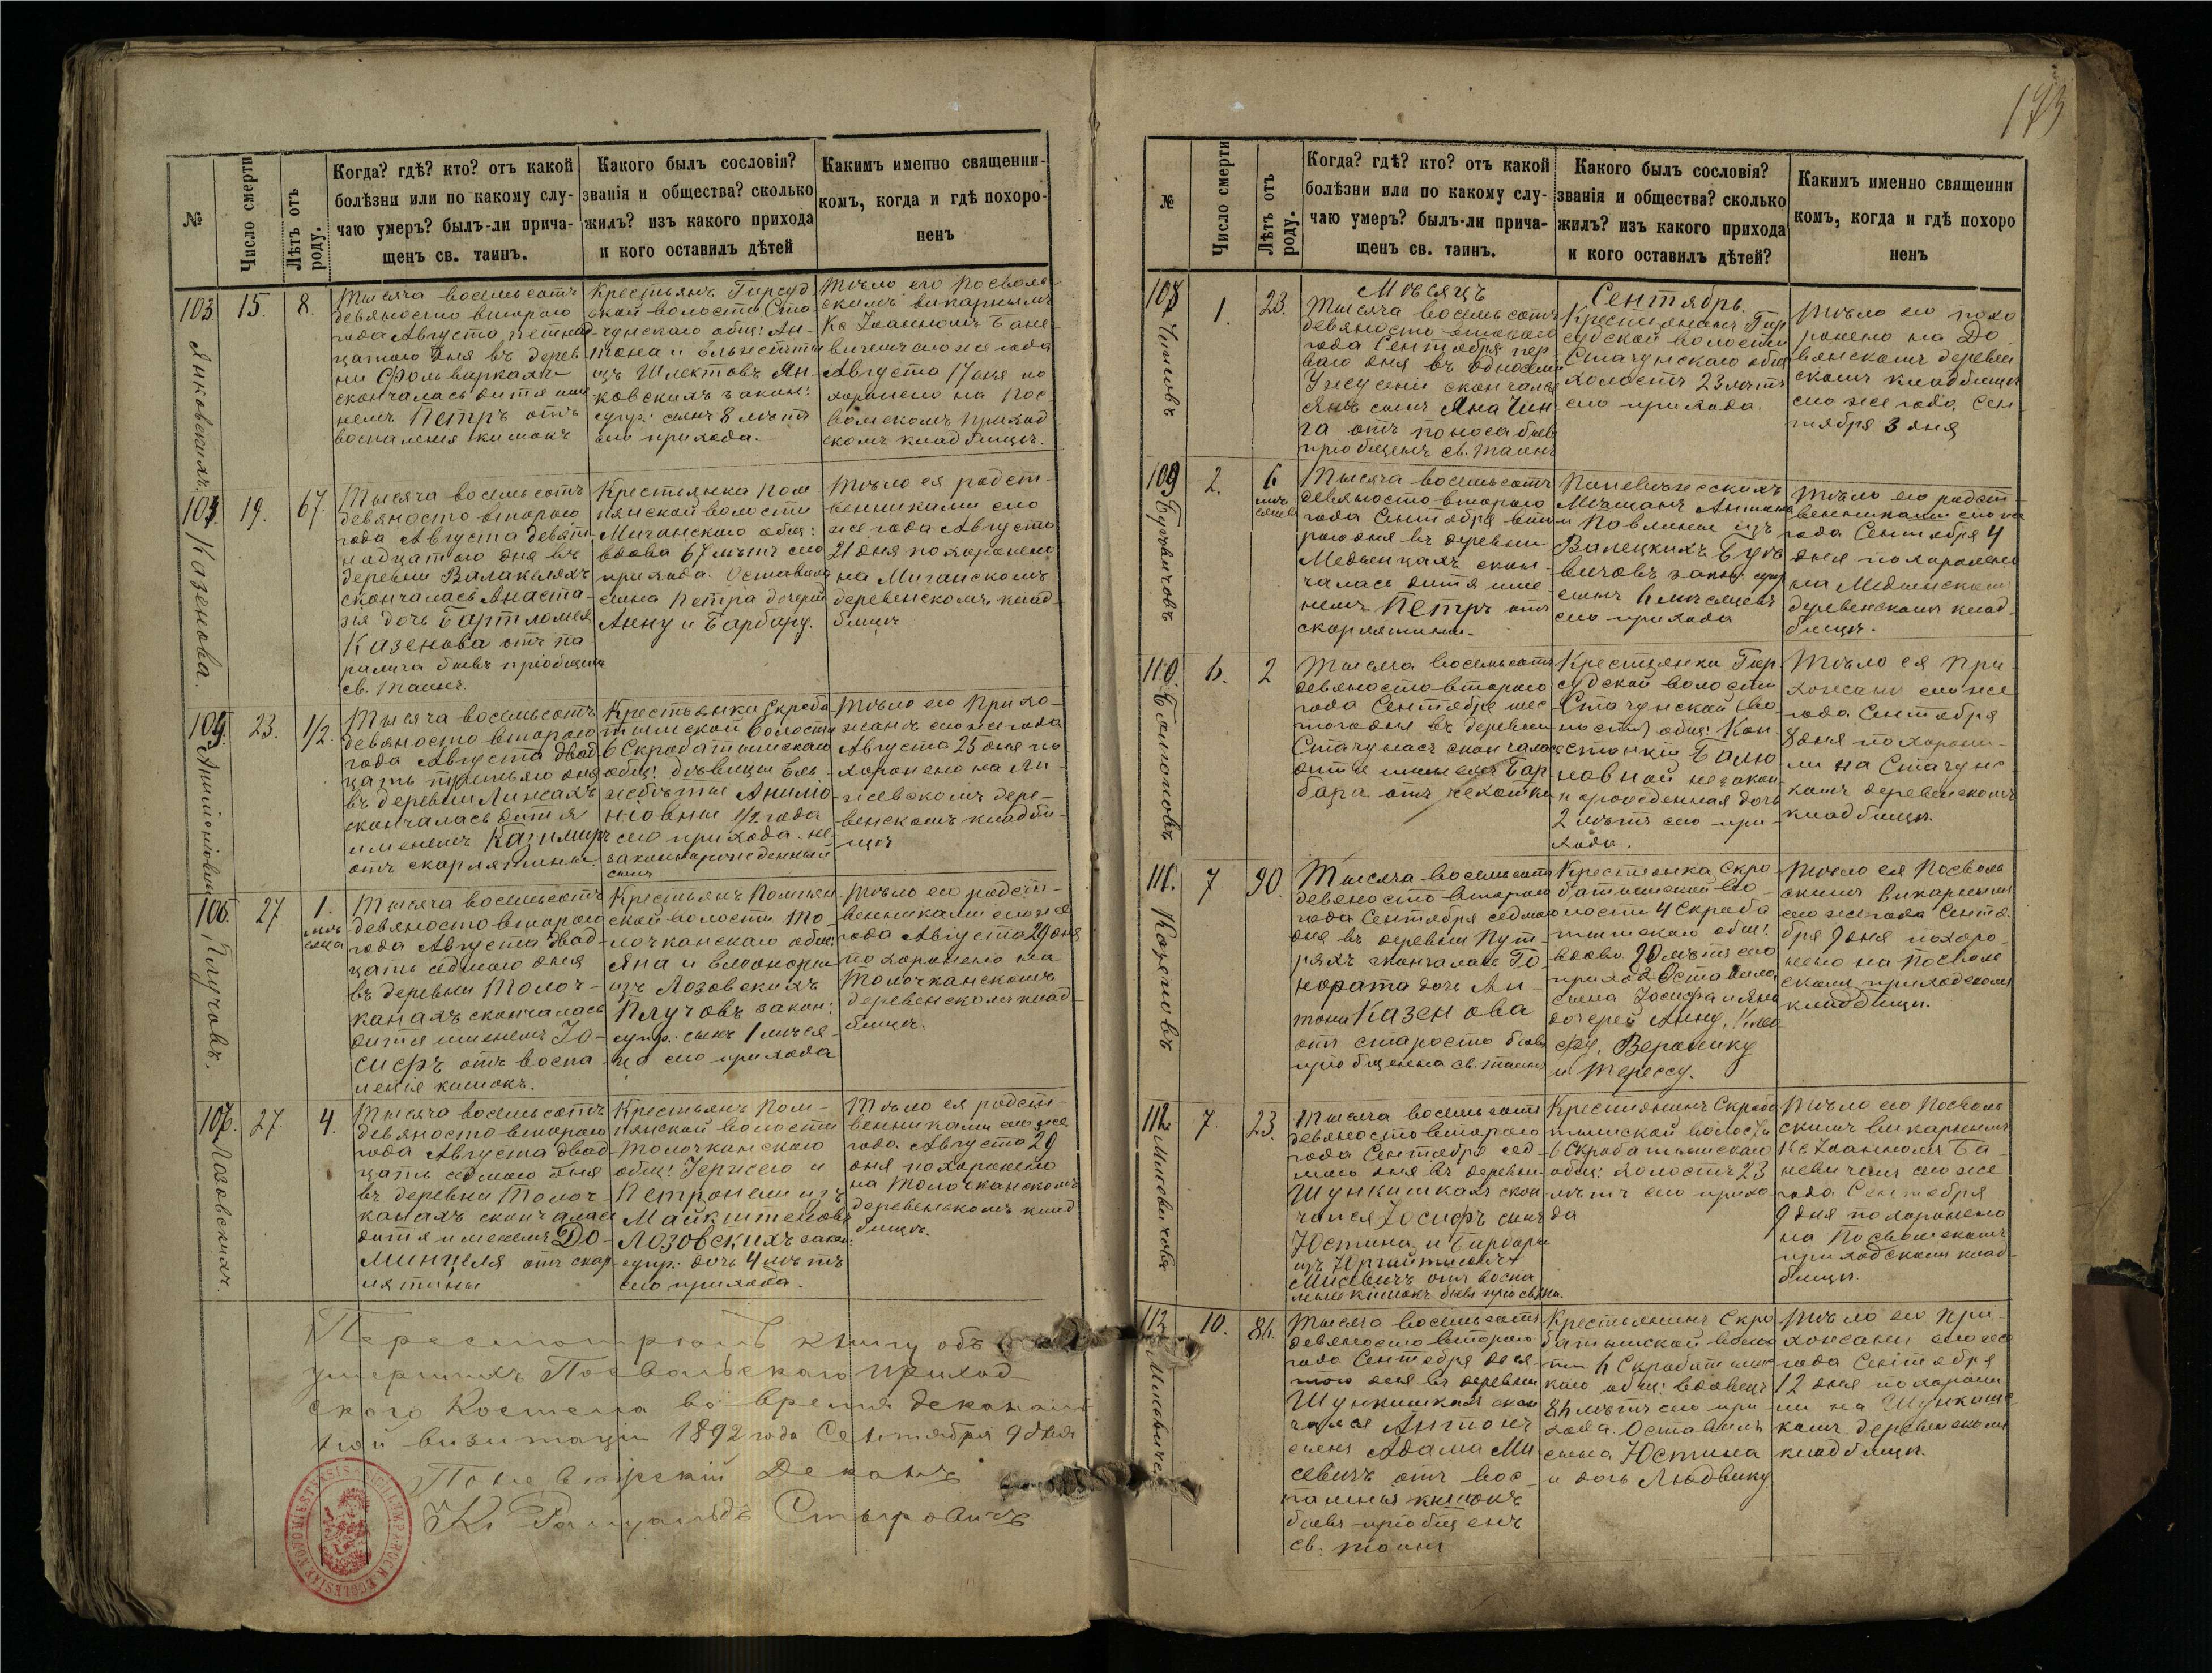 173
№
Число смерти
Лѣтъ отъ роду.
Когда? гдѣ? кто? отъ какой
болѣзни или по какому слу-
чаю умеръ? былъ-ли прича-
щенъ св. таинъ.
Какого былъ сословія?
званія и общества? сколько
жилъ? изъ какого прихода
и кого оставилъ дѣтей
Какимъ именно священни-
комъ, когда и гдѣ похоро-
ненъ
103
15.
8.
Янковскихъ.
Тысяча восемьсотъ
девяносто второго
года Августа пятнад-
цатого дня въ дерев-
ни Фольваркахъ
скончалась дитя име-
немъ Петръ отъ
воспаления кишокъ
Крестьянъ Гирсуд
ской волости Ста-
чунскаго общ: Ан-
тона и Ельжбѣты
изъ Шлектовъ Ян-
ковскихъ закон:
супр: сынъ 8 лѣтъ
сего прихода.
Тѣло его Посволь-
скимъ викарнымъ
Кс Іоанномъ Бане-
вичемъ сего же года
Августа 17 дня по
хоронено на Пос-
вольскомъ приход
скомъ кладбищѣ.
104.
19.
67.
Казенова.
Тысяча восемьсотъ
девяносто второго
года Августа девят-
надцатого дня въ
деревни Валакеляхъ
скончалась Анаста-
зія дочь Бартломея
Казенова отъ па
ралича бывъ пріобщена
св. Таинъ.
Крестьянка Пом
пянской волости
Миганскаго общ:
вдова 67 лѣтъ сего
прихода. Оставила
сына Петра дочерей
Анну и Барбару.
Тѣло ея родст-
венниками сего
же года Августа
21 дня похоронено
на Миганскомъ
деревенскомъ клад-
бищѣ
105.
23.
1/2.
Тысяча восемьсотъ
девяносто второго
года Августа двад-
цать третьяго дня
въ деревни Линсахъ
скончалась дитя
именемъ Казимиръ
отъ скарлятины.
Крестьянки Скроба
тишской волости
6 Скробатишскаго
общ: дѣвицы Ель-
жбѣты
1/2 года
сего прихода не-
законнорожденный
сынъ
Тѣло его Прихо-
жане сего же года
Августа 25 дня по-
хоронено на Ли-
скомъ дере-
венскомъ кладби-
щѣ
106.
27
1.
мѣ-
сяца
Плучовъ.
Тысяча восемьсотъ
девяносто второго
года Августа двад-
цать седмого дня
въ деревни Толоч-
канахъ скончалась
дитя именемъ Іо-
сифъ отъ воспа-
ленія кишокъ.
Крестьянъ Помпян
ской волости То-
лочканскаго общ:
Яна и Елеоноры
изъ Лозовскихъ
Плучовъ закон:
супр: сынъ 1 мѣся-
ца сего прихода
Тѣло его родст-
венниками сего же
года Августа 29 дня
похоронено на
Толочканскомъ
деревенскомъ клад-
бищѣ.
107.
27.
4.
Лозовскихъ.
Тысяча восемьсотъ
девяносто второго
года Августа двад-
цать седмого дня
въ деревни Толоч-
канахъ скончалась
дитя именемъ До-
минцеля отъ скар-
лятины
Крестьянъ Пом-
пянской волости
Толочканскаго
общ: Іержего и
Петронели изъ
Майкштеновъ
Лозовскихъ закон.
супр: дочь 4 лѣтъ
сего прихода.
Тѣло ея родст-
венниками сего же
года Августа 29
дня похоронено
на Толочканскомъ
деревенскомъ клад
бищѣ.
книгу объ
умершихъ Посвольскаго приход-
скаго Костела во время деканаль
ной визитаціи 1892 года Сентября 9 дня
Поневѣжскій Деканъ
Кс Ромуальдъ Стыровичъ
№
Число смерти
Лѣтъ отъ роду.
Когда? гдѣ? кто? отъ какой
болѣзни или по какому слу-
чаю умеръ? былъ-ли прича-
щенъ св. таинъ.
Какого былъ сословія?
званія и общества? сколько
жилъ? изъ какого прихода
и кого оставилъ дѣтей?
Какимъ именно священни
комъ, когда и гдѣ похоро
ненъ
Мѣсяцъ
Сентябрь.
108.
1.
23.
Тысяча восемьсотъ
девяносто втораго
года Сентября пер-
ваго дня въ
скончался
Янъ сынъ Яна Чин-
га отъ поноса бывъ
пріобщенъ св. таинъ
Крестьянинъ Гир
судской волости
Стачунскаго общ
холостъ 23 лѣтъ
сего прихода.
Тѣло его похо
ронено на До-
вянскомъ деревен
скомъ кладбищѣ
сего же года Сен-
тября 3 дня
109
2.
6
мѣ-
сяцевъ
Тысяча восемьсотъ
девяносто второго
года Сентября вто-
рого дня въ деревни
Медыницахъ скон-
чалась дитя име-
немъ Петръ отъ
скарлятины.
Поневѣжскихъ
Мѣщанъ Антона
и Павлины изъ
Валецкихъ
закон: супр
сынъ 6 мѣсяцевъ
сего прихода
Тѣло его родст-
венниками сего же
года Сентября 4
дня похоронено
на
деревенскомъ клад-
бищѣ.
110.
6.
2
Тысяча восемьсотъ
девяносто второго
года Сентября шес-
того дня въ деревни
Стачунахъ скончалась
дитя именемъ Бар
бара отъ чехотки
Крестьянки Гир
судской волости
Стачунской
общ: Кон-
станціи
незакон-
норожденная дочь
2 лѣтъ сего при-
хода.
Тѣло ея При-
хожане сего же
года Сентября
8 дня похорони-
ли на Стачунс
комъ деревенскомъ
кладбищѣ.
111.
7
90.
Козеновъ
Тысяча восемьсотъ
девяносто второго
года Сентября седмого
дня въ деревни Пут-
ряхъ скончалась Го-
нората дочь Ан-
тона Казенова
отъ старости бывъ
пріобщенна св. таинъ
Крестьянка Скро-
батишской во-
лости 4 Скроба
тишскаго общ:
вдова 90 лѣтъ сего
прихода Оставила
сына Іосифа и Яна
дочерей Анну,
Веронику
и Терессу.
Тѣло ея Посволь
скимъ викарнымъ
сего же года Сентя-
бря 9 дня похоро-
нено на Посволь
скомъ приходскомъ
кладбищѣ.
112.
7.
23.
Тысяча восемьсотъ
девяносто второго
года Сентября сед-
мого дня въ деревни
Шункишкахъ скон
чался Іосифъ сынъ
Юстина и Барбары
изъ
Мисевичъ отъ воспа
Крестьянинъ Скроба
тишской волости
6 Скробатишскаго
общ: холостъ 23
лѣтъ сего прихо
да
Тѣло его Посволь
скимъ викарнымъ
Кс Іоанномъ Ба-
невичемъ сего же
года Сентября
9 дня похоронено
на Посвольскомъ
приходскомъ клад-
бищѣ.
112
10.
84.
Мисевичъ
Тысяча восемьсотъ
девяносто второго
года Сентября деся-
того дня въ деревни
Шункишкахъ скон
чался Антонъ
сынъ Адама Ми-
севичъ отъ вос-
паленія кишокъ
бывъ пріобщенъ
св. таинъ
Крестьянинъ Скро
батишской волос
ти 6 Скробатишс
каго общ: вдовецъ
84 лѣтъ сего при-
хода. Оставилъ
сына Юстина
и дочь Людвику.
Тѣло его при-
хожане сего же
года Сентября
12 дня похорони
ли на Шункишс
комъ деревенскомъ
кладбищѣ.